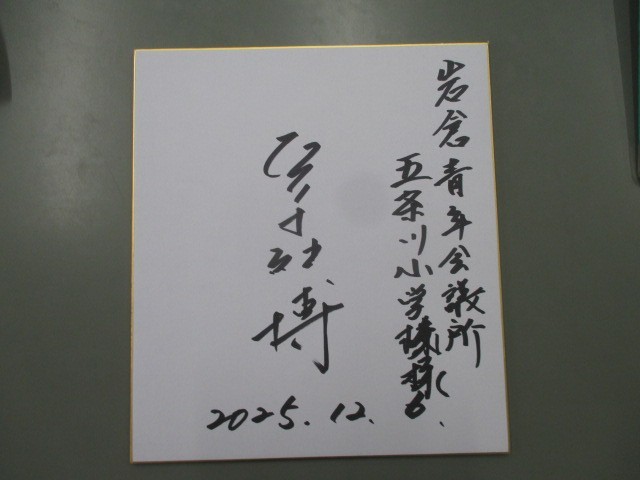 岩倉青年会議所
五条川小学校様
博
2025.12.6.